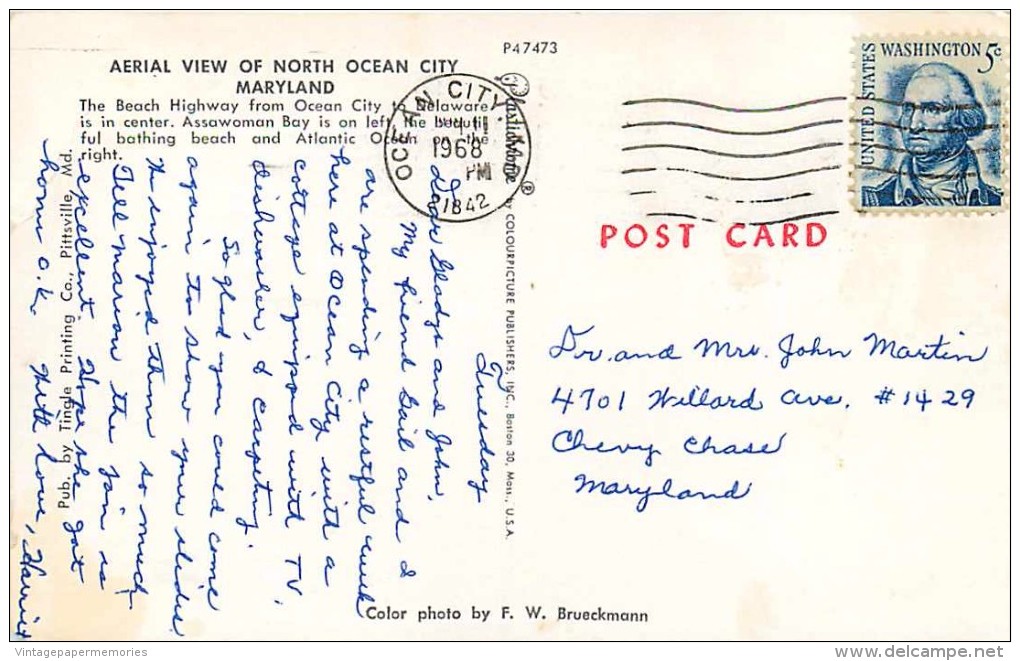 P47473
AERIAL VIEW OF NORTH OCEAN CITY
MARYLAND
The Beach Highway from Ocean City to Delaware
is in center. Assawoman Bay is on left, the beauti-
ful bathing beach and Atlantic Ocean on the
right.
OCEAN CITY, MD.
1968
PM
21842
UNITED STATES
WASHINGTON 5c
Plastichrome ®
BY COLOURPICTURE PUBLISHERS, INC., Boston 30, Mass., U.S.A.
POST CARD
Tuesday
Dear Gladys and John,
My friend Gail and I
are spending a restful week
here at Ocean City with a
cottage equipped with TV,
dishwasher, & carpeting.
So glad you could come
again to show your slides.
We enjoyed them so much.
Tell Marion the jam is
excellent. Hope she got
home o.k. With love, Harriet
Dr. and Mrs. John Martin
4701 Willard Ave. #1429
Chevy Chase
Maryland
Pub. by Tingle Printing Co., Pittsville, Md.
Color photo by F. W. Brueckmann
Vintagepapermemories
delcampe.net